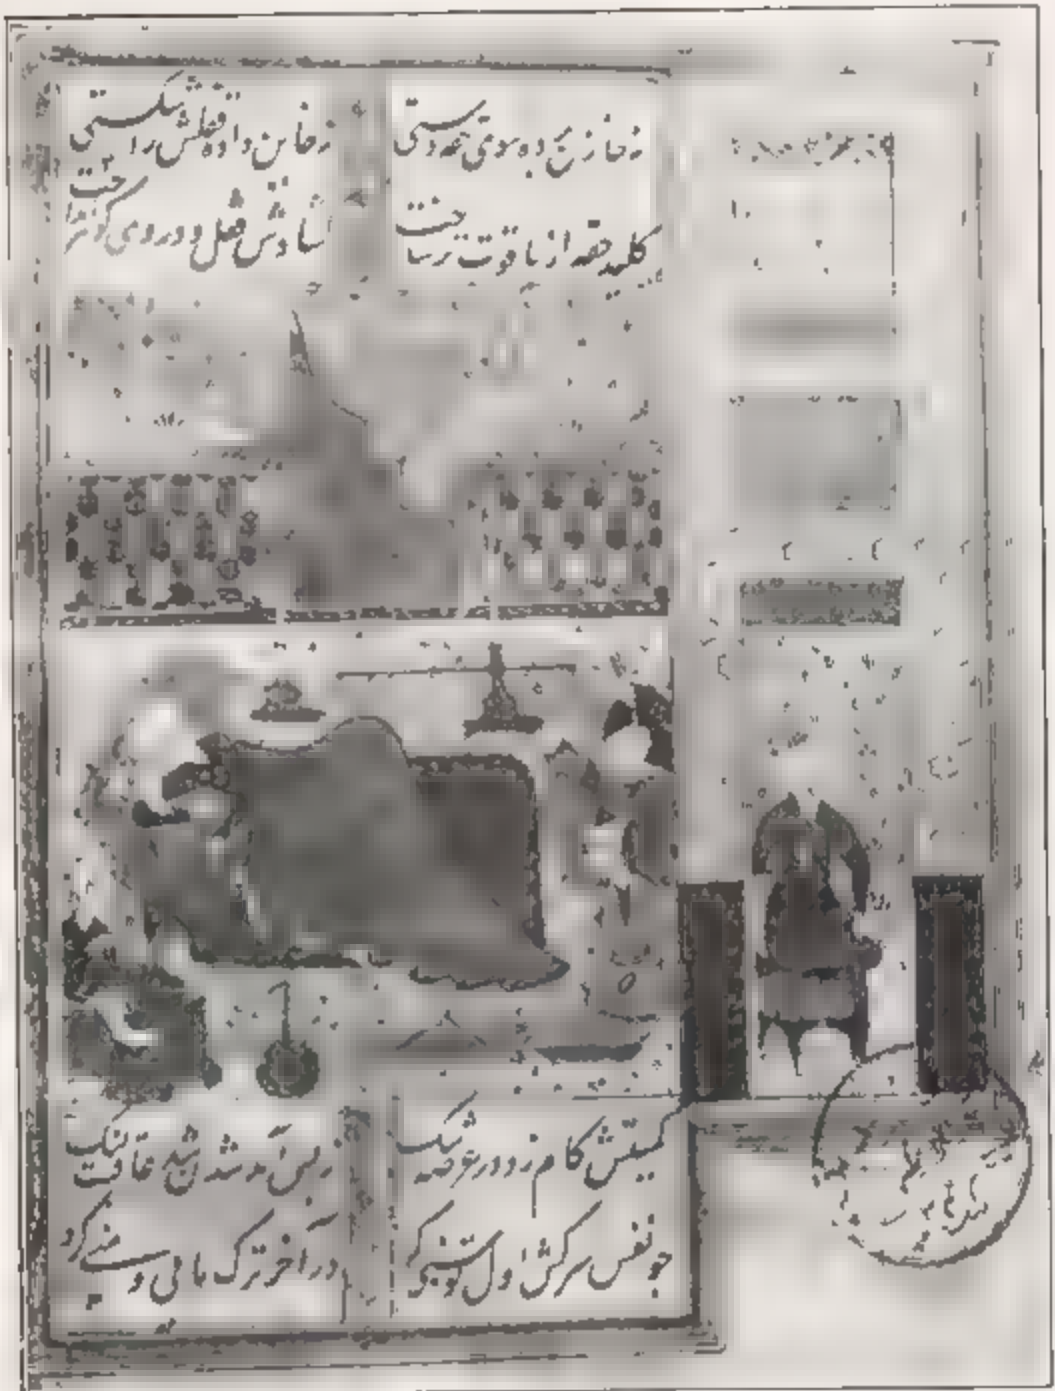 نه خازن برده سوی حقه دستی نه خاین داده قفلش را شکستی
کلید حقه از یاقوت تر ساخت کشادش قفل و در وی
کمیتش کام زد در عرصه تنک ز بس آمد شدن شد عاقبت لنک
چو نفس سرکش اول توسنی کرد در آخر ترک مایی و منی کرد